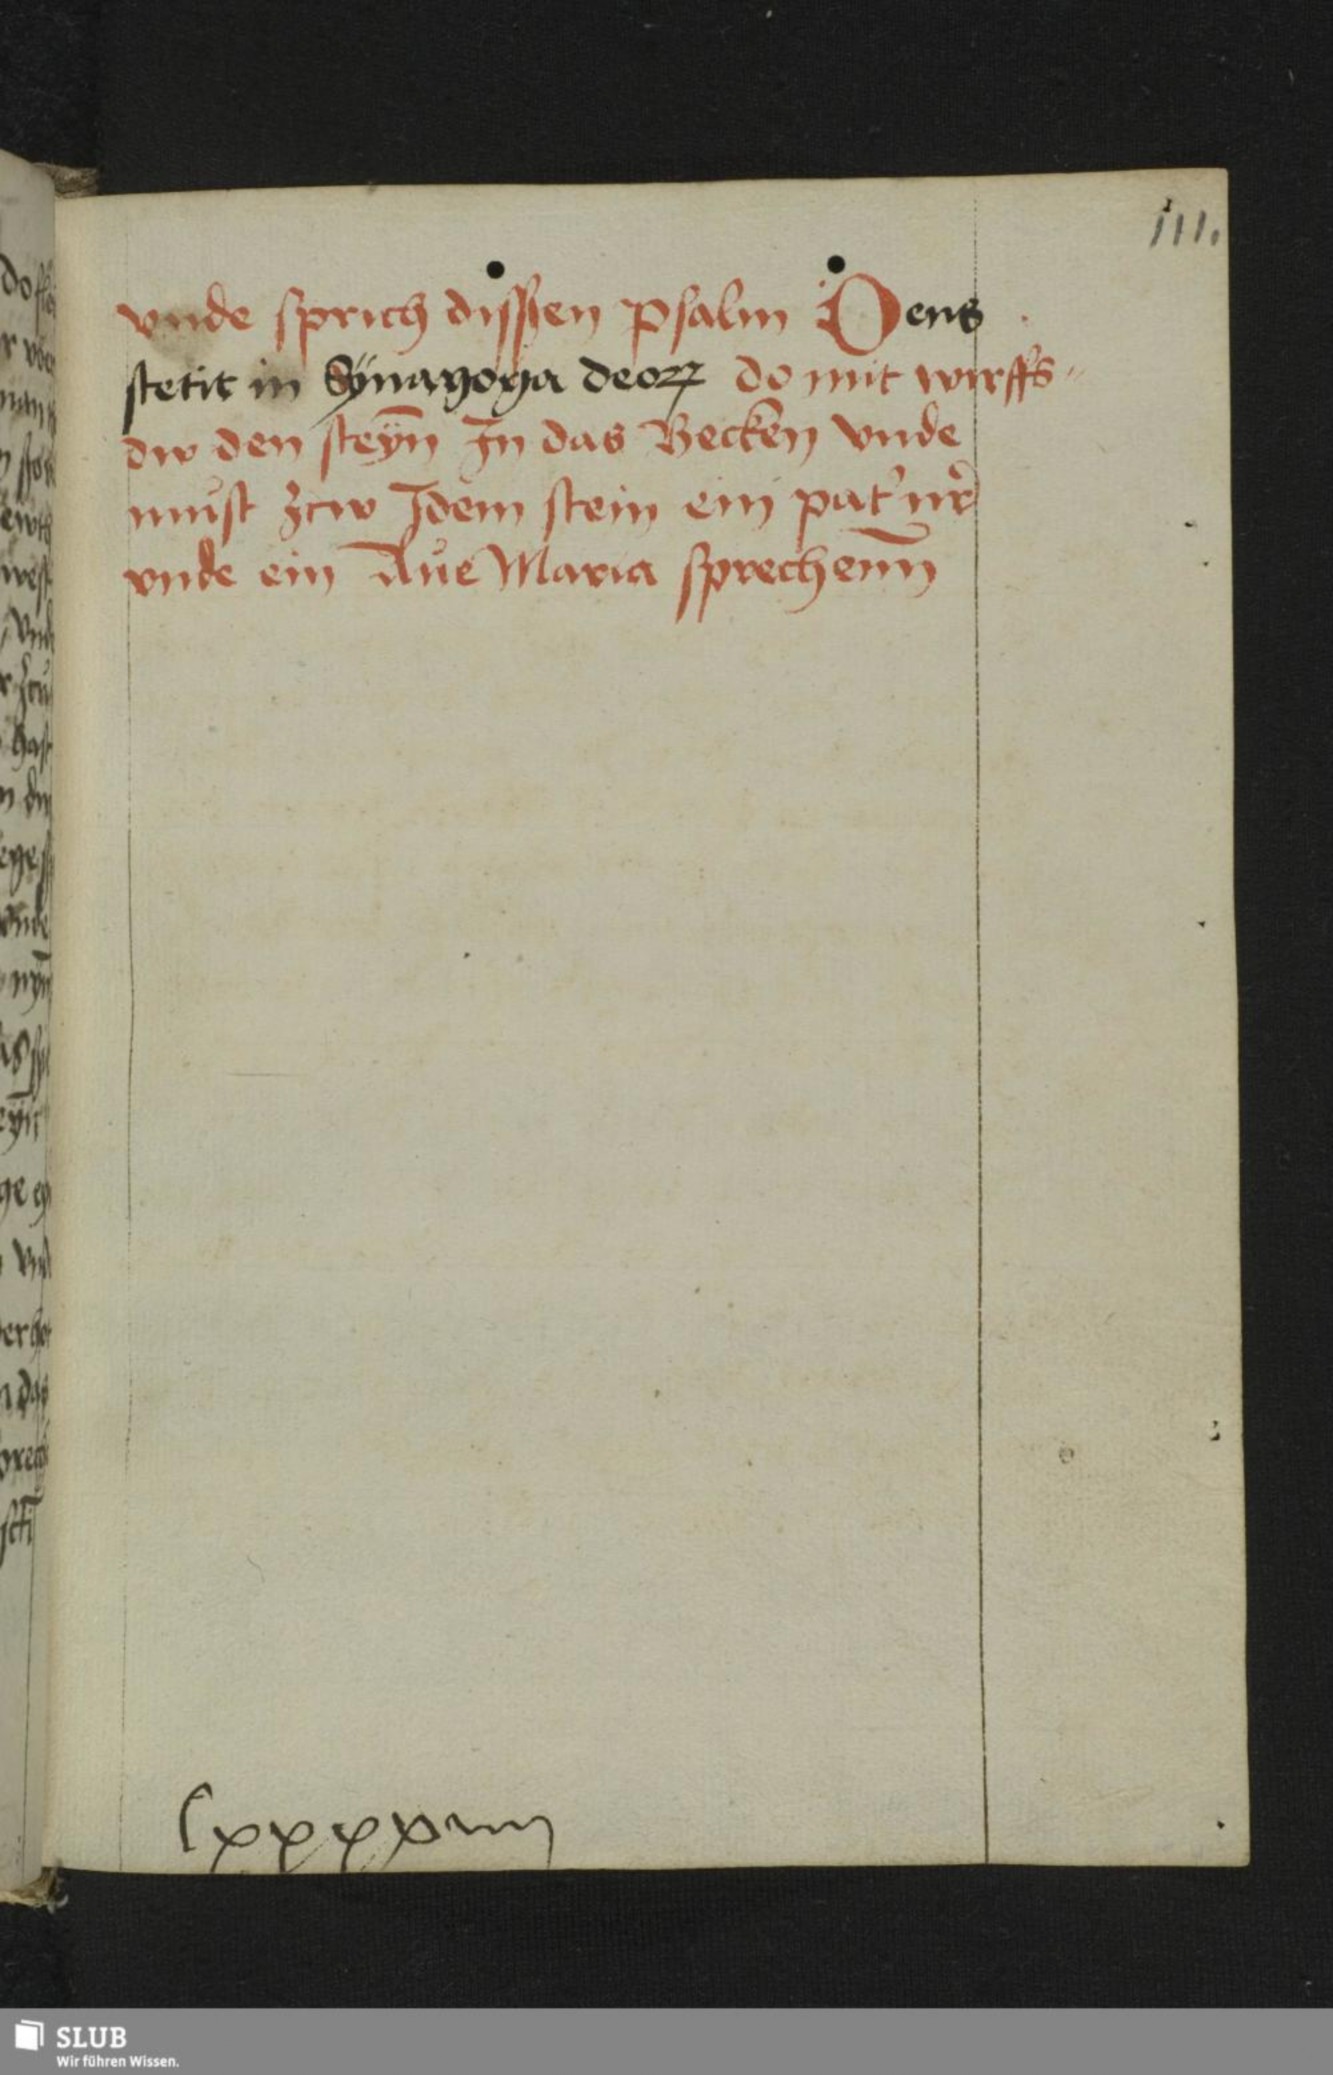 111.
vnde sprich dissen psalm Deus
stetit in Synagoga deoꝝ do mit wirffs
dw den steÿn̄ In das Becken vnde
must zcw Jdem stein ein pat'nr̄
vnde ein Aue Maria sprechenn̄
lxxxxiiii
SLUB
Wir führen Wissen.